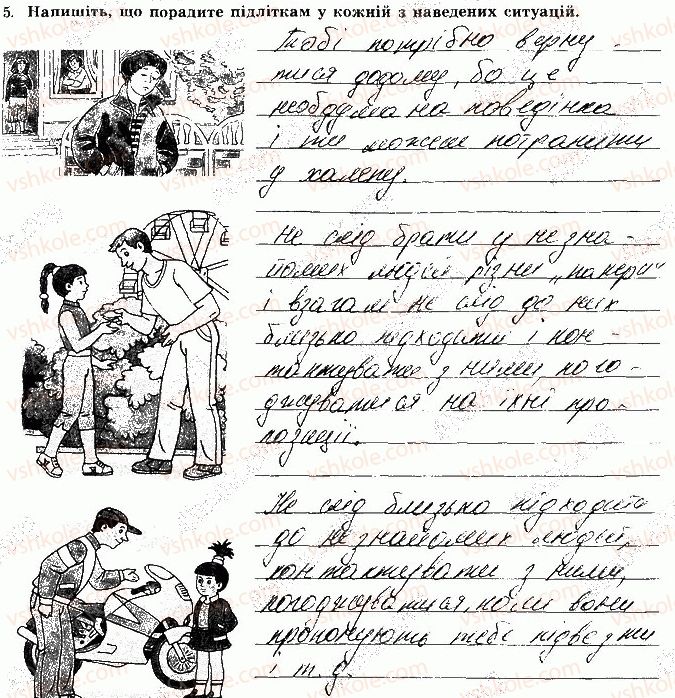 5. Напишіть, що порадите підліткам у кожній з наведених ситуацій.
Тобі потрібно верну -
тися додому, бо це
необдумана поведінка
і ти можеш потрапити
у халепу.
Не слід брати у незна -
йомих людей різни
і взагалі не слід до них
близько підходити і кон -
тактувати з ними пого -
джуватися на їхні про -
позиції.
Не слід близько підходити
до незнайомих людей,
контактувати з ними,
погоджуватися, коли вони
пропонують тебе підвезти
і т. д.
vshkole.com